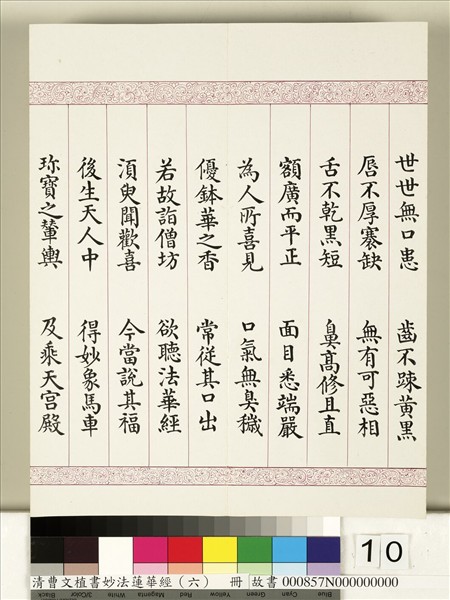 世世無口患 齒不踈黃黑
脣不厚褰缺 無有可惡相
舌不乾黑短 鼻高修且直
額廣而平正 面目悉端嚴
為人所喜見 口氣無臭穢
優鉢華之香 常從其口出
若故詣僧坊 欲聽法華經
湏臾聞歡喜 今當說其福
後生天人中 得妙象馬車
珎寶之輦輿 及乘天宮殿
10
Black 3/Color White Magenta Red Yellow Green Cyan Blue
清曹文植書妙法蓮華經(六) 冊 故書 000857N000000000